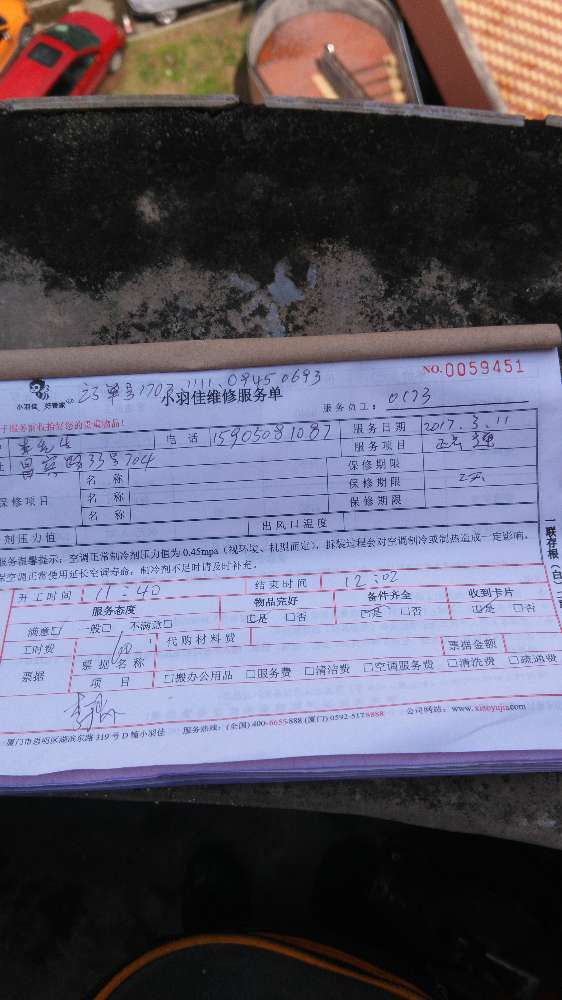 订单号1703111109450693
小羽佳 好管家
小羽佳维修服务单
NO.0059451
服务员工: 0173
服务前收拾好您的贵重物品!
李先生 电话 15905081087 服务日期 2017.3.11
33号704 服务项目
名称 保修期限
保修项目 名称 保修期限
名称 保修期限
剂压力值 出风口温度
服务温馨提示:空调正常制冷剂压力值为0.45mpa(视环境、机型而定),拆装过程会对空调制冷或制热造成一定影响,
空调正常使用延长空调寿命,制冷剂不足时请及时补充。
开工时间 11:40 结束时间 12:02
服务态度 物品完好 备件齐全 收到卡片
满意□ 一般□ 不满意□ □是 □否 □是 □否 □是 □否
工时费 100 代购材料费
票据 票据名称 票据金额
项目 □搬办公用品 □服务费 □清洁费 □空调服务费 □清洗费 □疏通费
厦门市思明区湖滨东路319号D幢小羽佳 服务热线:(全国)400-6655-888 (厦门)0592-5178888 公司网站:www.xiaoyujia.com
联存根(白